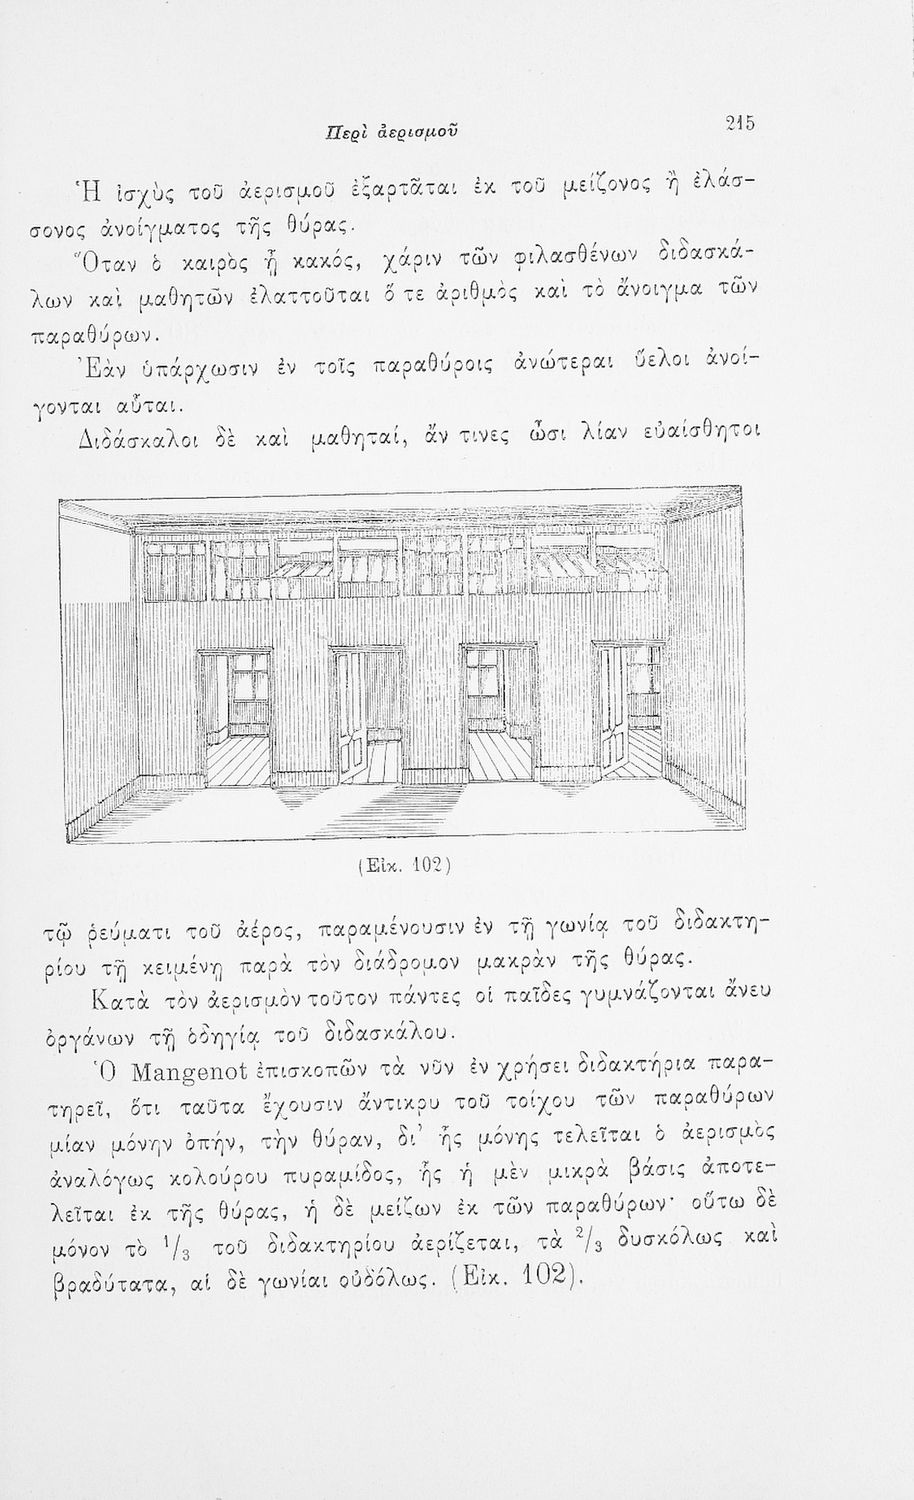 Περὶ ἀερισμοῦ
215
Ἡ ἰσχὺς τοῦ ἀερισμοῦ ἐξαρτᾶται ἐκ τοῦ μείζονος ἢ ἐλάσ-
σονος ἀνοίγματος τῆς θύρας.
Ὅταν ὁ καιρὸς ᾖ κακός, χάριν τῶν φιλασθένων διδασκά-
λων καὶ μαθητῶν ἐλαττοῦται ὅ τε ἀριθμὸς καὶ τὸ ἄνοιγμα τῶν
παραθύρων.
Ἐὰν ὑπάρχωσιν ἐν τοῖς παραθύροις ἀνώτεραι ὕελοι ἀνοί-
γονται αὗται.
Διδάσκαλοι δὲ καὶ μαθηταί, ἄν τινες ὦσι λίαν εὐαίσθητοι
(Εἰκ. 102)
τῷ ῥεύματι τοῦ ἀέρος, παραμένουσιν ἐν τῇ γωνίᾳ τοῦ διδακτη-
ρίου τῇ κειμένῃ παρὰ τὸν διάδρομον μακρὰν τῆς θύρας.
Κατὰ τὸν ἀερισμὸν τοῦτον πάντες οἱ παῖδες γυμνάζονται ἄνευ
ὀργάνων τῇ ὁδηγίᾳ τοῦ διδασκάλου.
Ὁ Mangenot ἐπισκοπῶν τὰ νῦν ἐν χρήσει διδακτήρια παρα-
τηρεῖ, ὅτι ταῦτα ἔχουσιν ἄντικρυ τοῦ τοίχου τῶν παραθύρων
μίαν μόνην ὀπήν, τὴν θύραν, δι' ἧς μόνης τελεῖται ὁ ἀερισμὸς
ἀναλόγως κολούρου πυραμίδος, ἧς ἡ μὲν μικρὰ βάσις ἀποτε-
λεῖται ἐκ τῆς θύρας, ἡ δὲ μείζων ἐκ τῶν παραθύρων· οὕτω δὲ
μόνον τὸ 1/3 τοῦ διδακτηρίου ἀερίζεται, τὰ 2/3 δυσκόλως καὶ
βραδύτατα, αἱ δὲ γωνίαι οὐδόλως. (Εἰκ. 102).